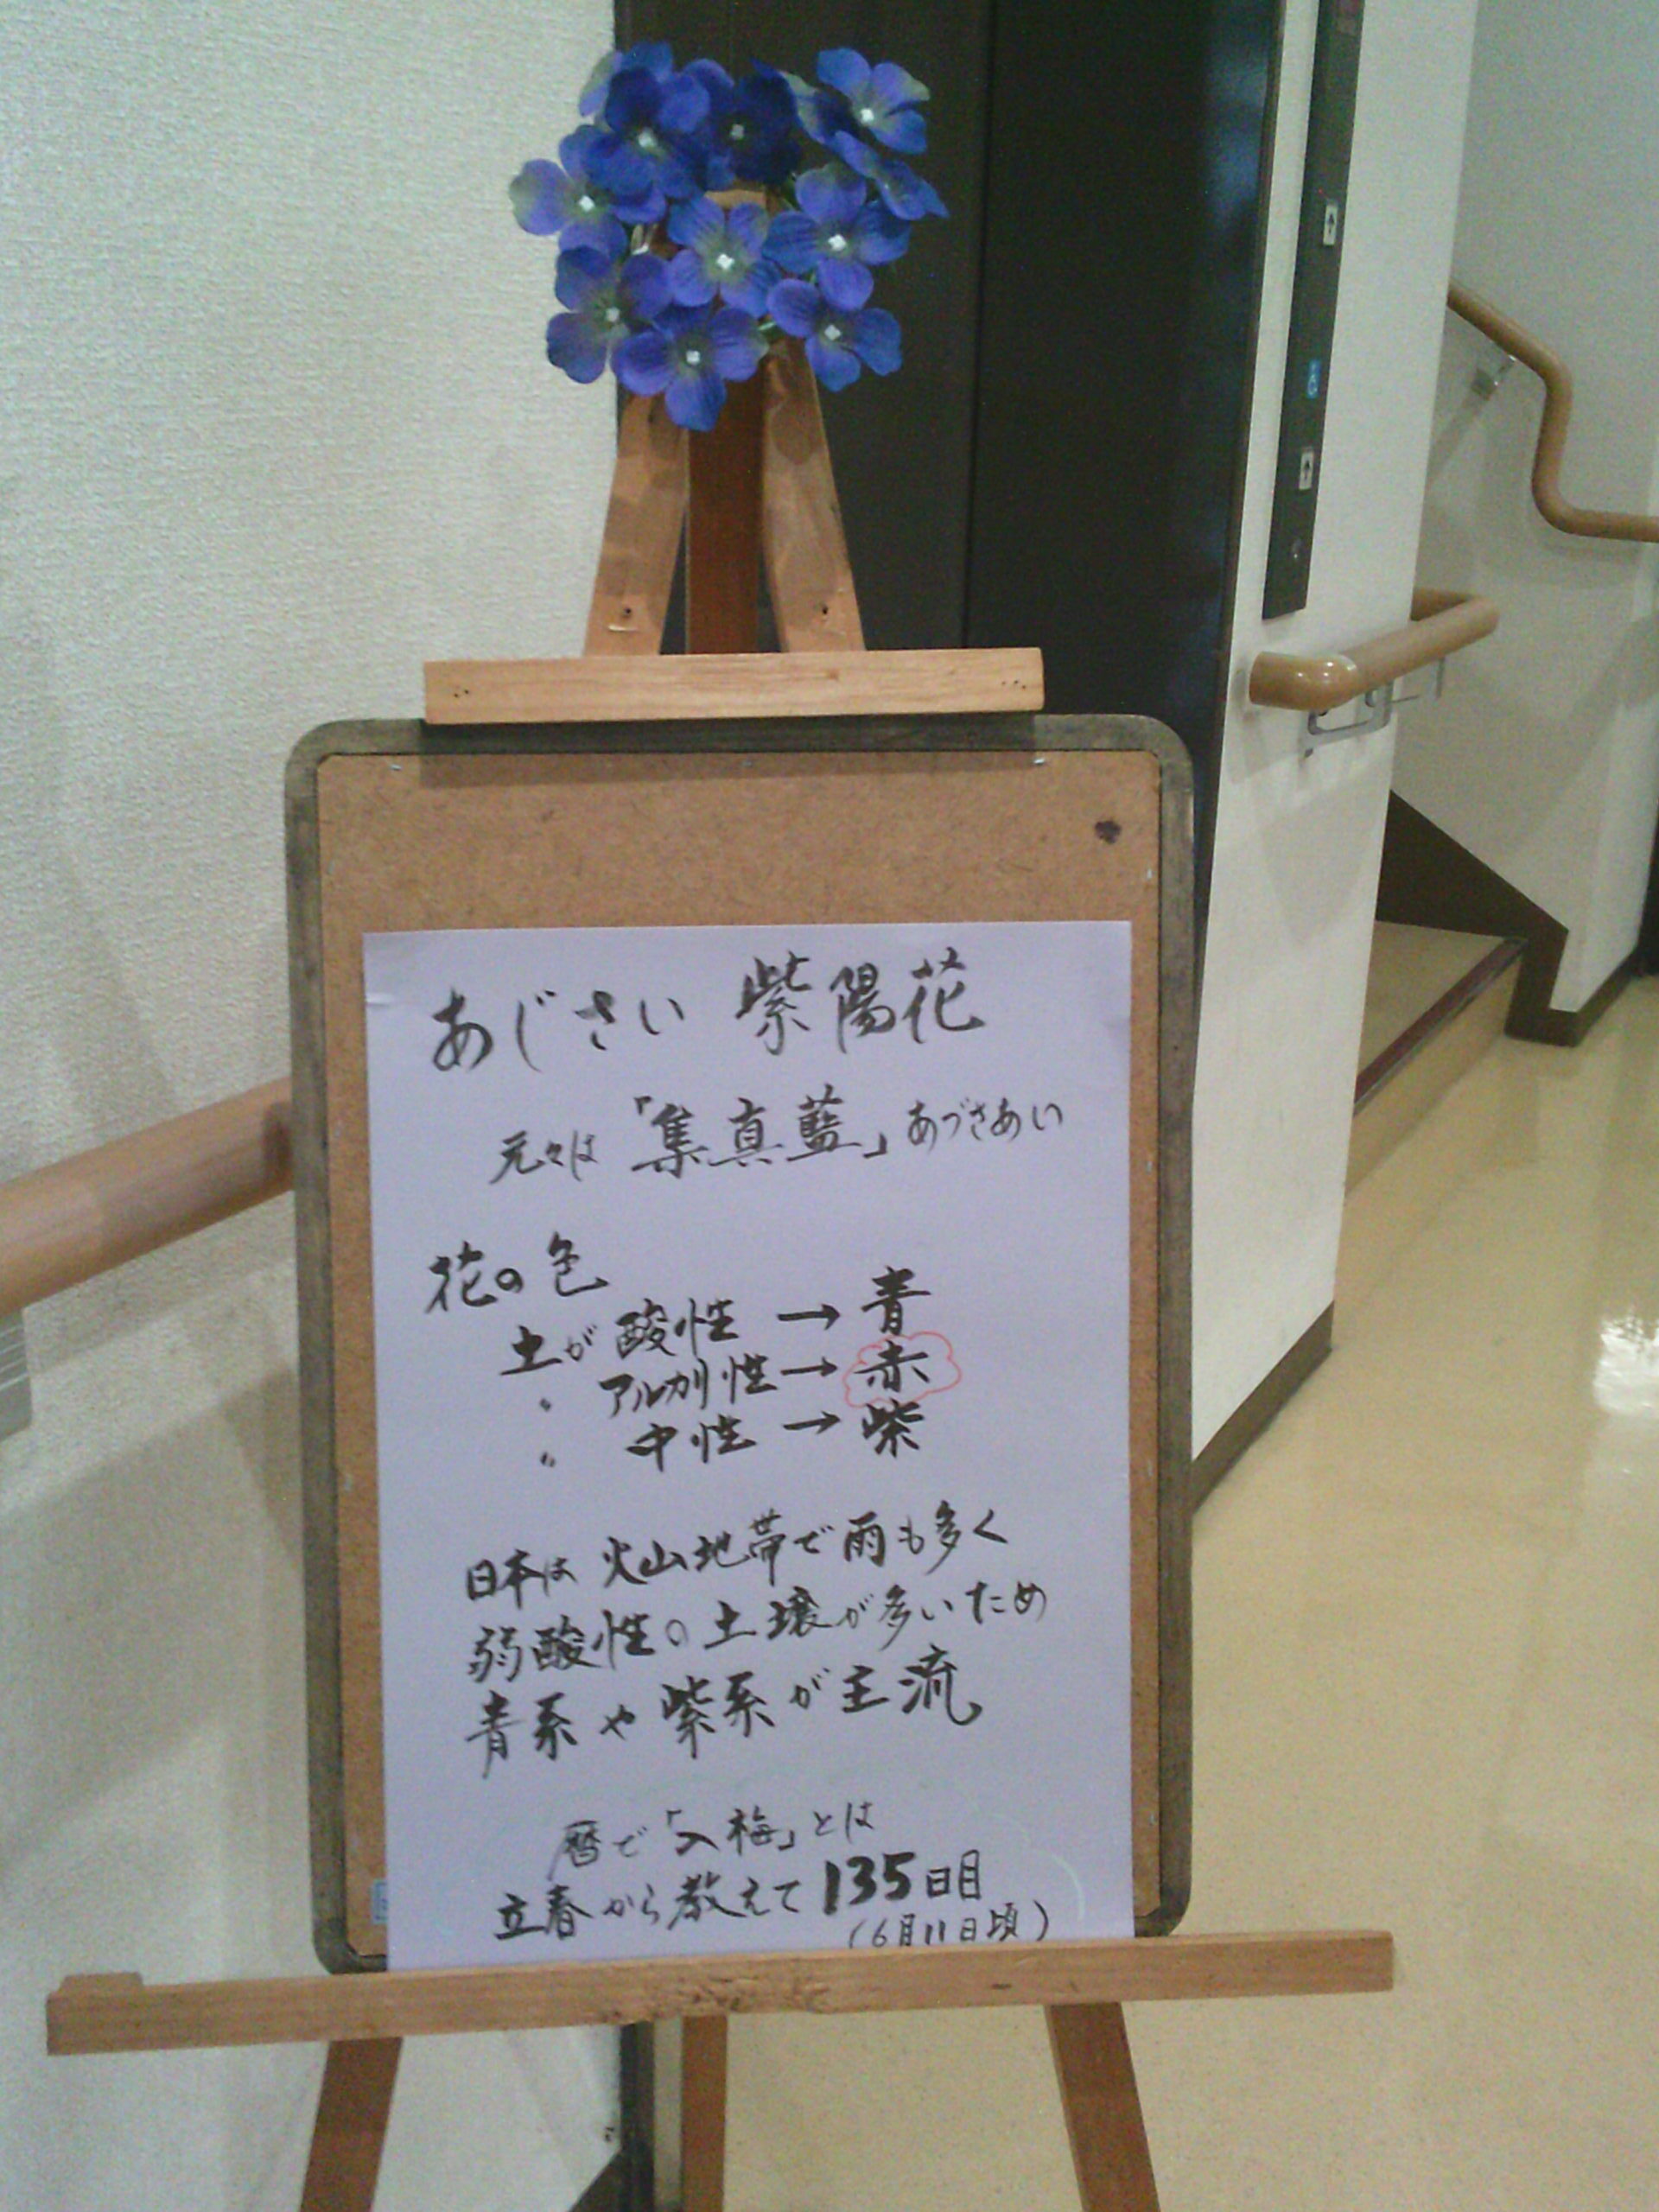 あじさい 紫陽花
元々は「集真藍」あづさあい
花の色
土が酸性→青
〃 アルカリ性→赤
〃 中性→紫
日本は火山地帯で雨も多く
弱酸性の土壌が多いため
青系や紫系が主流
暦で「入梅」とは
立春から教えて135日目
(6月11日頃)